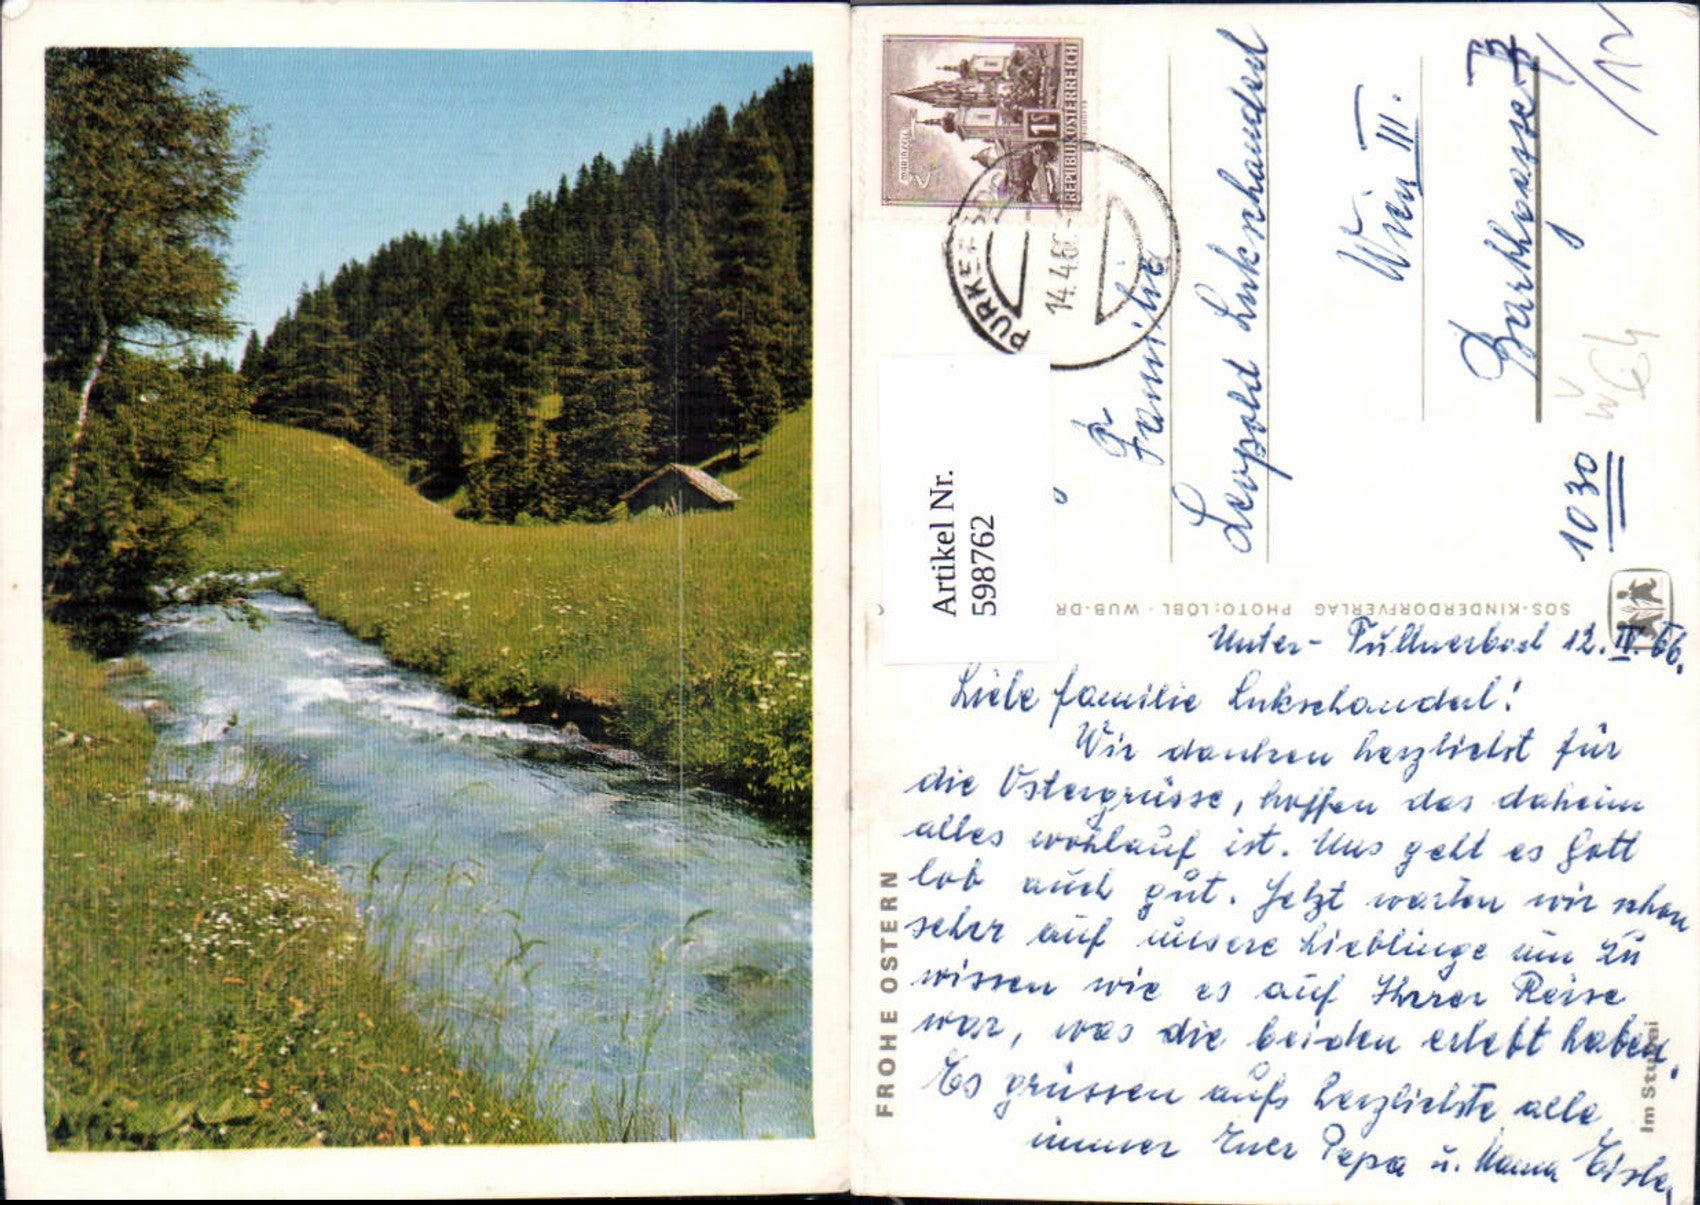 REPUBLIK ÖSTERREICH
1S
MARIAZELL
PURKER
14.4.66
Familie
Leopold Lukschanderl
Wien III.
1030
Artikel Nr.
5987762
SOS-KINDERDORFVERLAG PHOTO: LÖBL · WUB-DR
FROHE OSTERN
Im Stubai
Unter-Tullnerbach 12.IV.66.
Liebe Familie Lukschanderl!
Wir danken herzlichst für
die Ostergrüsse, hoffen das daheim
alles wohlauf ist. Uns geht es Gott
lob auch gut. Jetzt warten wir schon
sehr auf unsere Lieblinge um zu
wissen wie es auf Ihrer Reise
war, was die beiden erlebt haben.
Es grüssen aufs herzlichste alle
immer Euer Papa u. Mama Eisler